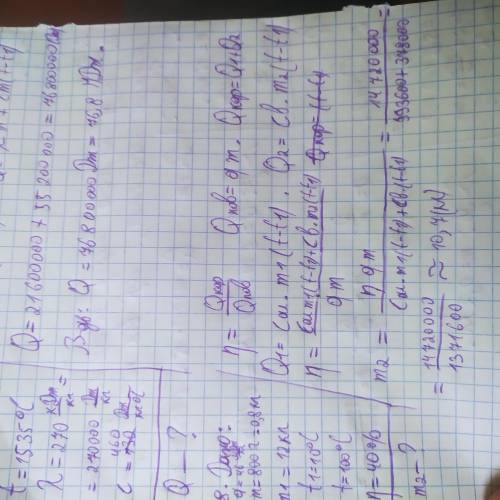 t = 1535°C
λ = 270 кДж/кг =
= 270000 Дж/кг
c = 460 Дж/кг·°C
Q - ?
Q = 21600000 + 55200000 = 76800000 Дж
Q = 76800000 Дж = 76,8 МДж.
8. Дано:
m = 800 г = 0,8 кг
m1 = 12 кг
t1 = 10°C
t = 100°C
η = 40%
m2 - ?
η = Qкор/Qпов Qпов = qm. Qкор = Q1 + Q2
Q1 = Cал·m1(t-t1). Q2 = Cв·m2(t-t1)
η = Cал·m1(t-t1) + Cв·m2(t-t1) / qm
m2 = ηqm / Cал·m1(t-t1) + Cв(t-t1) = 14720000 / 993600 + 378000 =
= 14720000 / 1371600 ≈ 10,7 (кг)